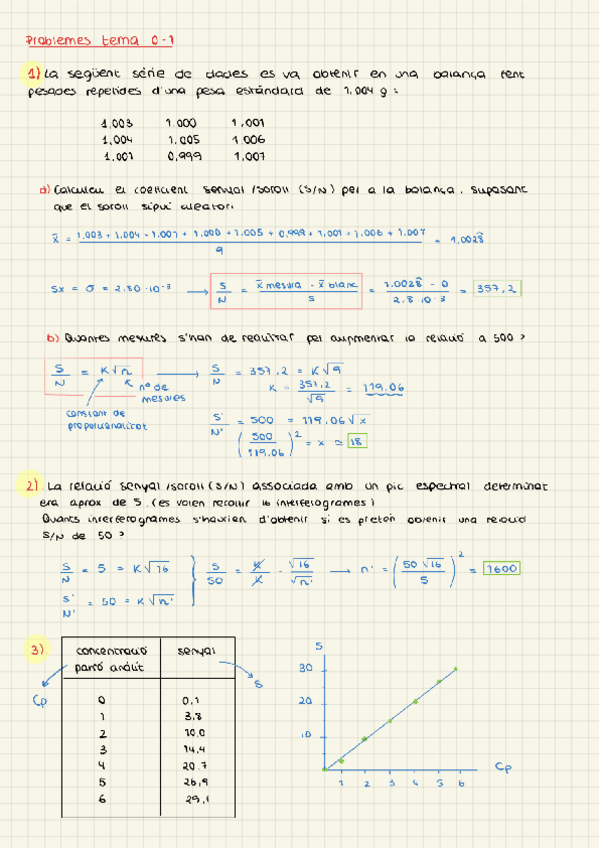 Problemes tema 0-1
1) La següent sèrie de dades es va obtenir en una balança fent
pesades repetides d'una pesa estàndard de 1,004 g:
1.003 1.000 1,001
1.004 1.005 1.006
1.001 0,999 1,007
a) Calculeu el coeficient senyal/soroll (S/N) per a la balança. Suposant
que el soroll sigui aleatori.
x̄ = 1,003 + 1,004 + 1.001 + 1,000 + 1.005 + 0,999 + 1,001 + 1,006 + 1,007 / 9 = 1.0028
Sx = σ = 2,80·10⁻³ → S/N = x̄ mesura - x̄ blanc / s = 1.0028 - 0 / 2,8·10⁻³ = 357,2
b) Quantes mesures s'han de realitzar per augmentar la relació a 500?
S/N = K√n → S/N = 357,2 = K√9
nº de mesures
K = 357,2/√9 = 119.06
constant de
proporcionalitat
S'/N' = 500 = 119.06√x
(500/119.06)² = x ≃ 18
2) La relació senyal/soroll (S/N) associada amb un pic espectral determinat
era aprox de 5. (es varen recollir 16 interferogrames)
Quants interferogrames s'haurien d'obtenir si es pretén obtenir una relació
S/N de 50?
S/N = 5 = K√16 } 5/50 = K/K · √16/√n' → n' = (50√16/5)² = 1600
S'/N' = 50 = K√n'
3) concentració senyal
patró analit
Cp S
0 0,1
1 3,8
2 10,0
3 14,4
4 20.7
5 26,9
6 29,1
S
30
20
10
1 2 3 4 5 6
Cp